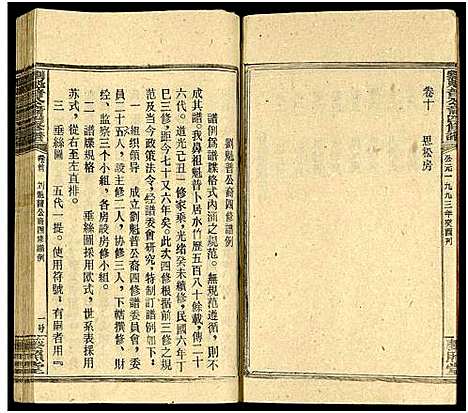 卷十　思松房
公元一九九三年癸酉刋
劉魁普公裔四修譜例
譜例爲譜牒格式內涵之規范。無規難遵循，則
成其譜。我鼻祖魁普卜居水竹歷五百八十餘載，傳二十
六代。道光己丑一修家乘，光緒癸未續修，民國六年丁
巳三修，距今七十又六年矣。此次四修根据前三修之規
范及当今政策法令，經譜委會研究，特制訂譜例如下：
一　組织領导　成立劉魁普公裔四修譜委員會，委
員二十五人，設主修二人，协修三人，下轄撰修、財
经、监察三个小组，各房設房修小组。
二　譜牒規格　垂絲圖採用欧式，世系表採用
苏式，從右至左直排。
三　垂絲圖　五代一提。使用符號，有嗣者用『
卷首　刘魁普公裔四修譜例